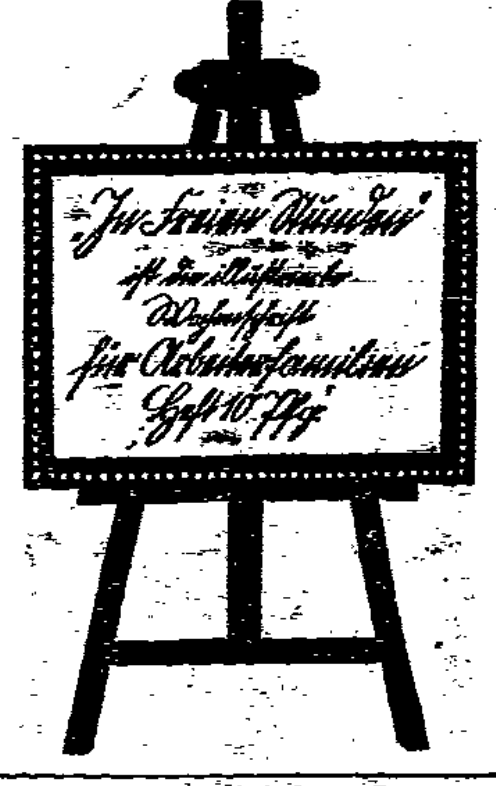 „In Freien Stunden"
ist die illustrierte
Wochenschrift
für Arbeiterfamilien
Heft 10 Pfg.